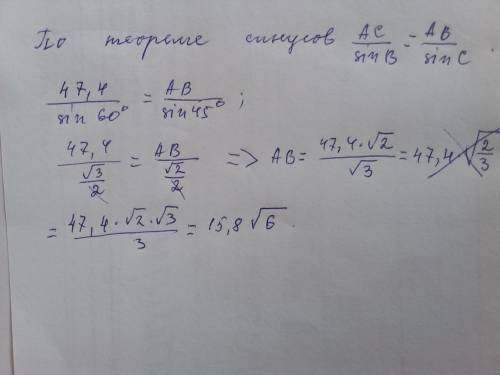 По теореме синусов AC/sinB = AB/sinC.
47,4/sin 60° = AB/sin 45°;
47,4/(√3/2) = AB/(√2/2) => AB = 47,4·√2/√3 = 47,4√(2/3)
= 47,4·√2·√3/3 = 15,8√6.